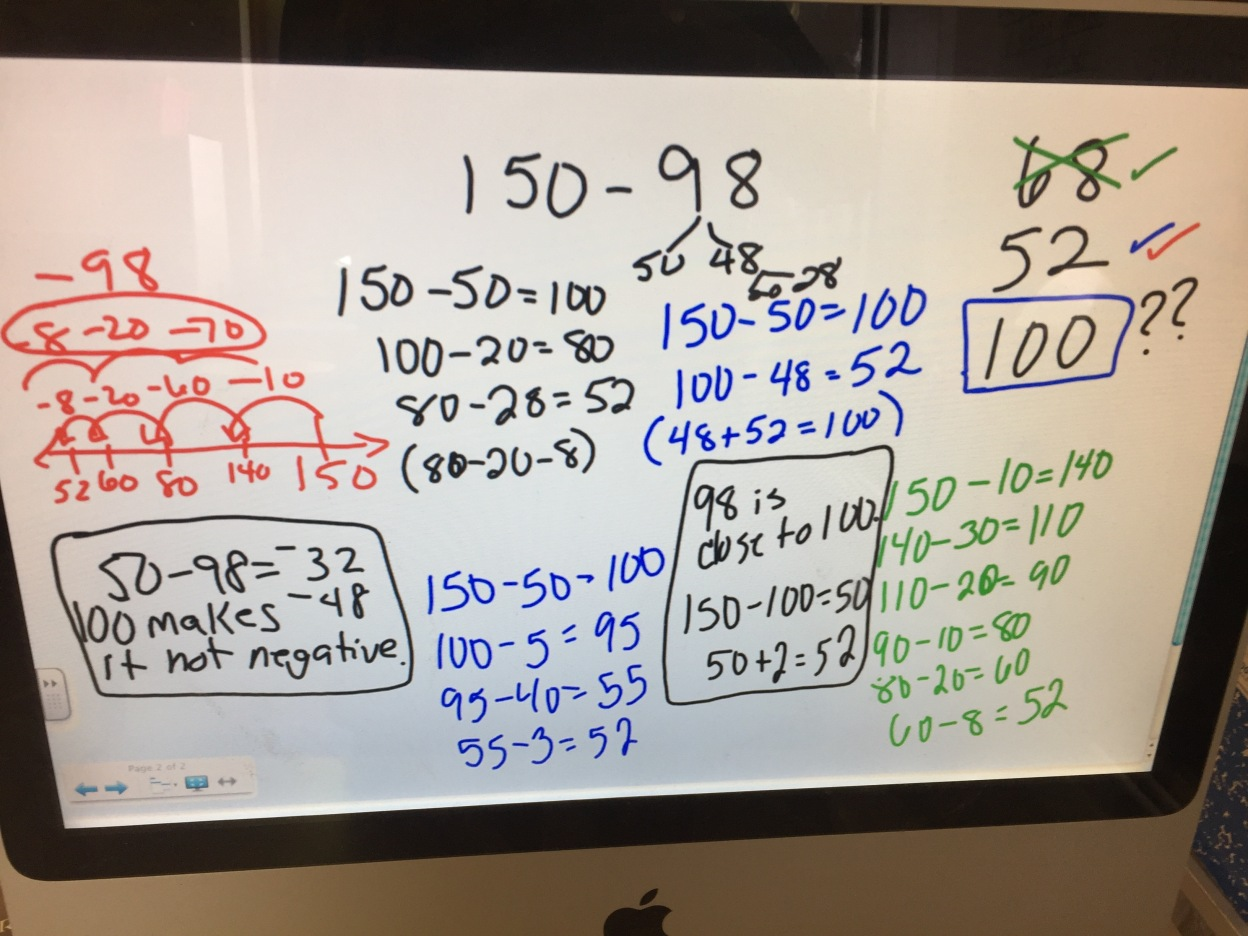 150 - 98
50 48
20 28
68
52
100 ??
-98
-8 -20 -70
-8 -20 -60 -10
52 60 80 140 150
150 - 50 = 100
100 - 20 = 80
80 - 28 = 52
(80 - 20 - 8)
150 - 50 = 100
100 - 48 = 52
(48 + 52 = 100)
50 - 98 = -32
100 makes -48
it not negative.
150 - 50 = 100
100 - 5 = 95
95 - 40 = 55
55 - 3 = 52
98 is
close to 100.
150 - 100 = 50
50 + 2 = 52
150 - 10 = 140
140 - 30 = 110
110 - 20 = 90
90 - 10 = 80
80 - 20 = 60
60 - 8 = 52
Page 2 of 2